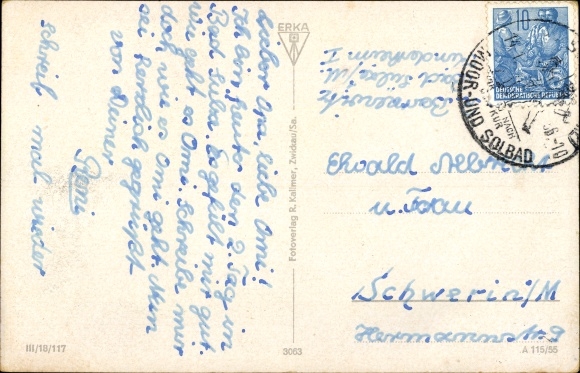 Lieber Opa, liebe Omi!
Ich bin heute den 2. Tag in
Bad Sulza. Es gefällt mir gut.
Wie geht es Omi. Schreibe mir
doch, wie es Omi geht. Nun
sei herzlich gegrüßt
von Deiner
schreib mal wieder
ERKA
Fotoverlag R. Kallmer, Zwickau/Sa.
Bad Sulza
10
DEUTSCHE
DEMOKRATISCHE REPUBLIK
MOOR- UND SOLBAD
NACH
KUR
Ewald Albrecht
u. Frau
Schwerin/M
Hermannstr. 9
III/18/117
3063
A 115/55